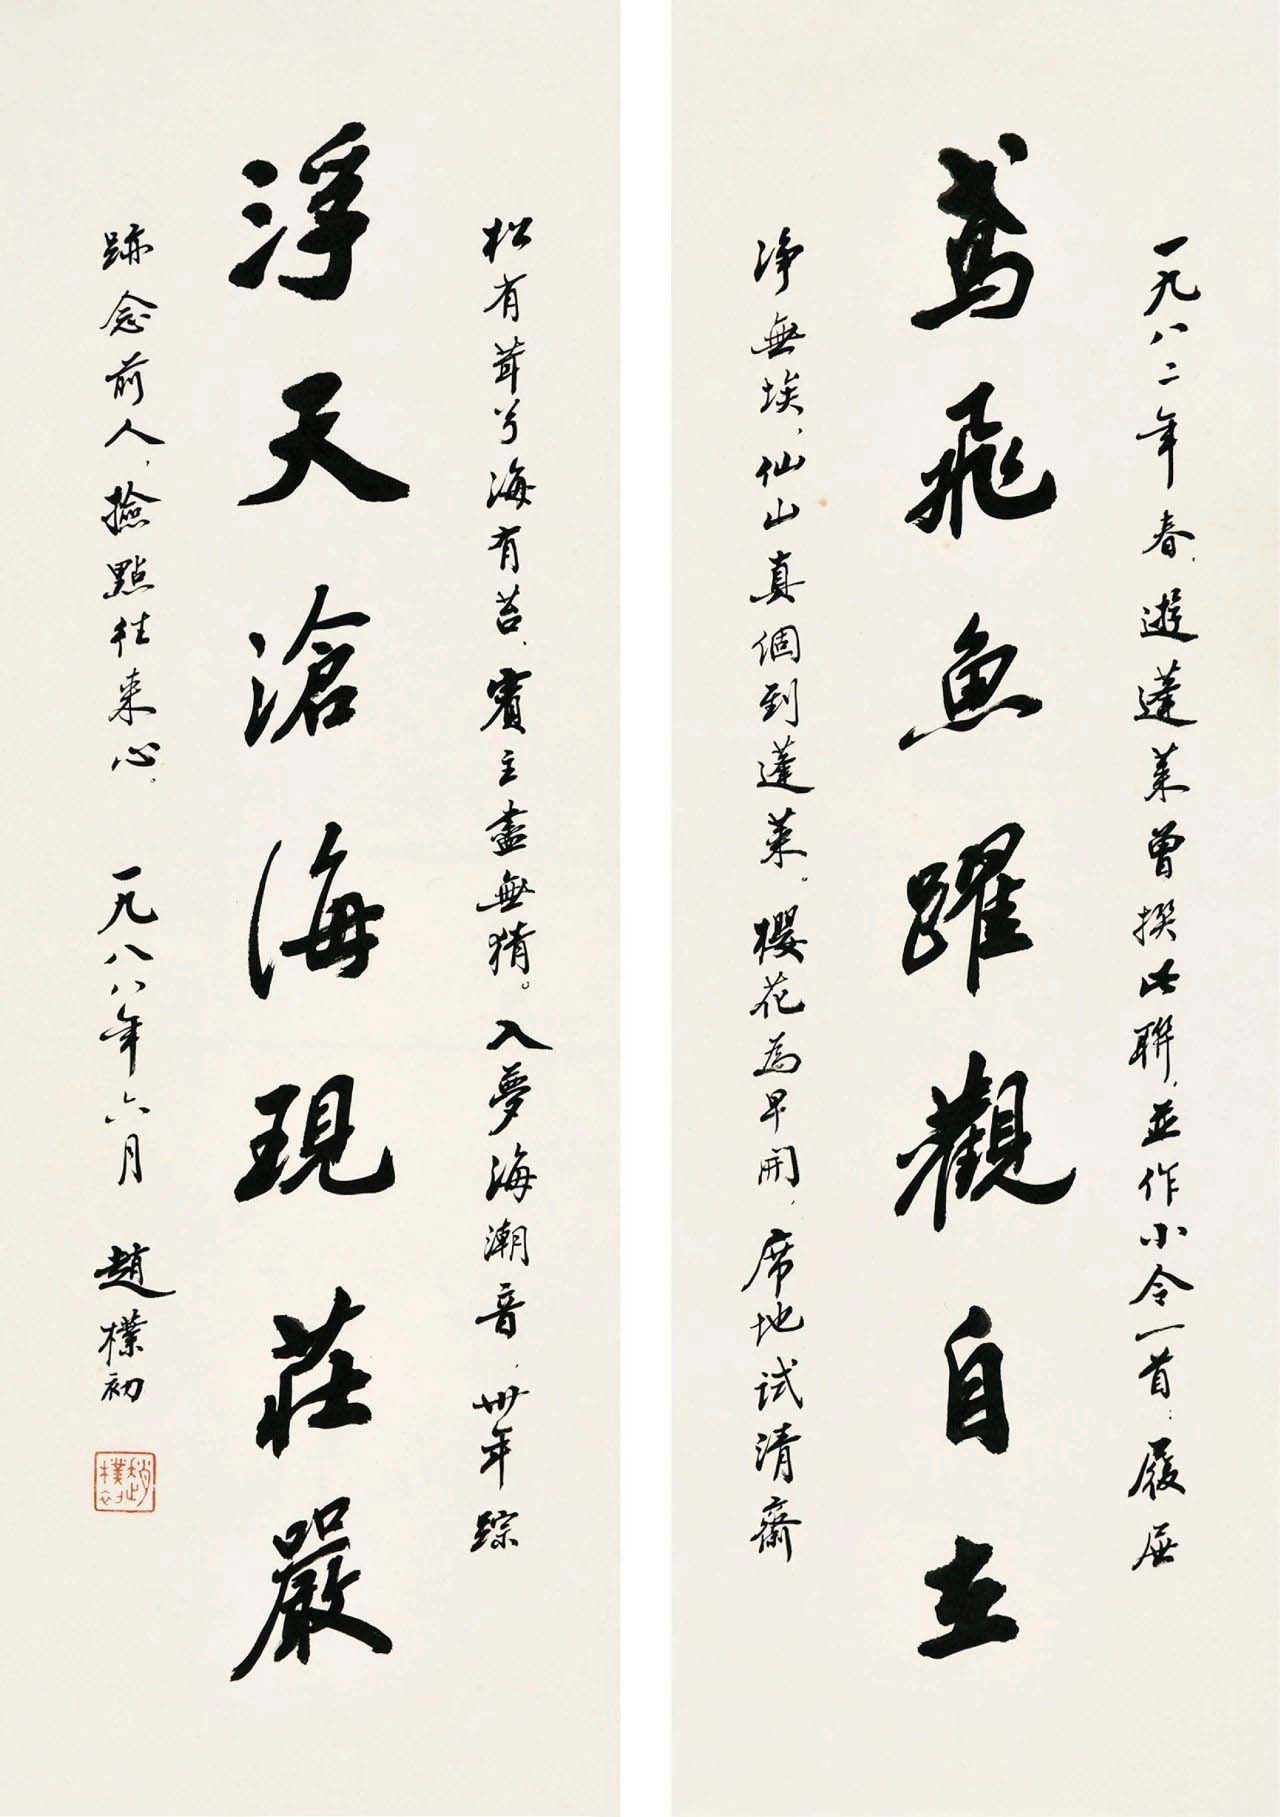 一九八二年春，遊蓬萊曾撰此聯，並作小令一首：履屐
鳶飛魚躍觀自在
净無埃，仙山真個到蓬萊。櫻花為早開，席地試清齋
松有茸兮海有苔，賓主盡無猜。入夢海潮音，卅年踪
浮天滄海現莊嚴
跡念前人，撿點往来心。 一九八八年六月 趙樸初
趙樸初